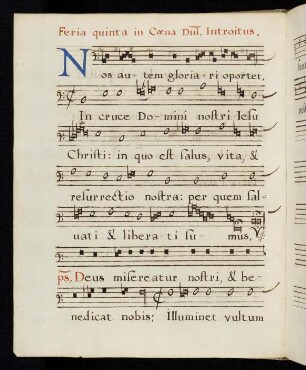 Feria quinta in Cœna Dñi, Introitus.
Nos au-tem gloria-ri oportet,
In cruce Do-mini nostri Iesu
Christi: in quo est salus, vita, &
resurrectio nostra: per quem sal-
uati & libera-ti su-mus,
ps. Deus misereatur nostri, & be-
nedicat nobis; Illuminet vultum